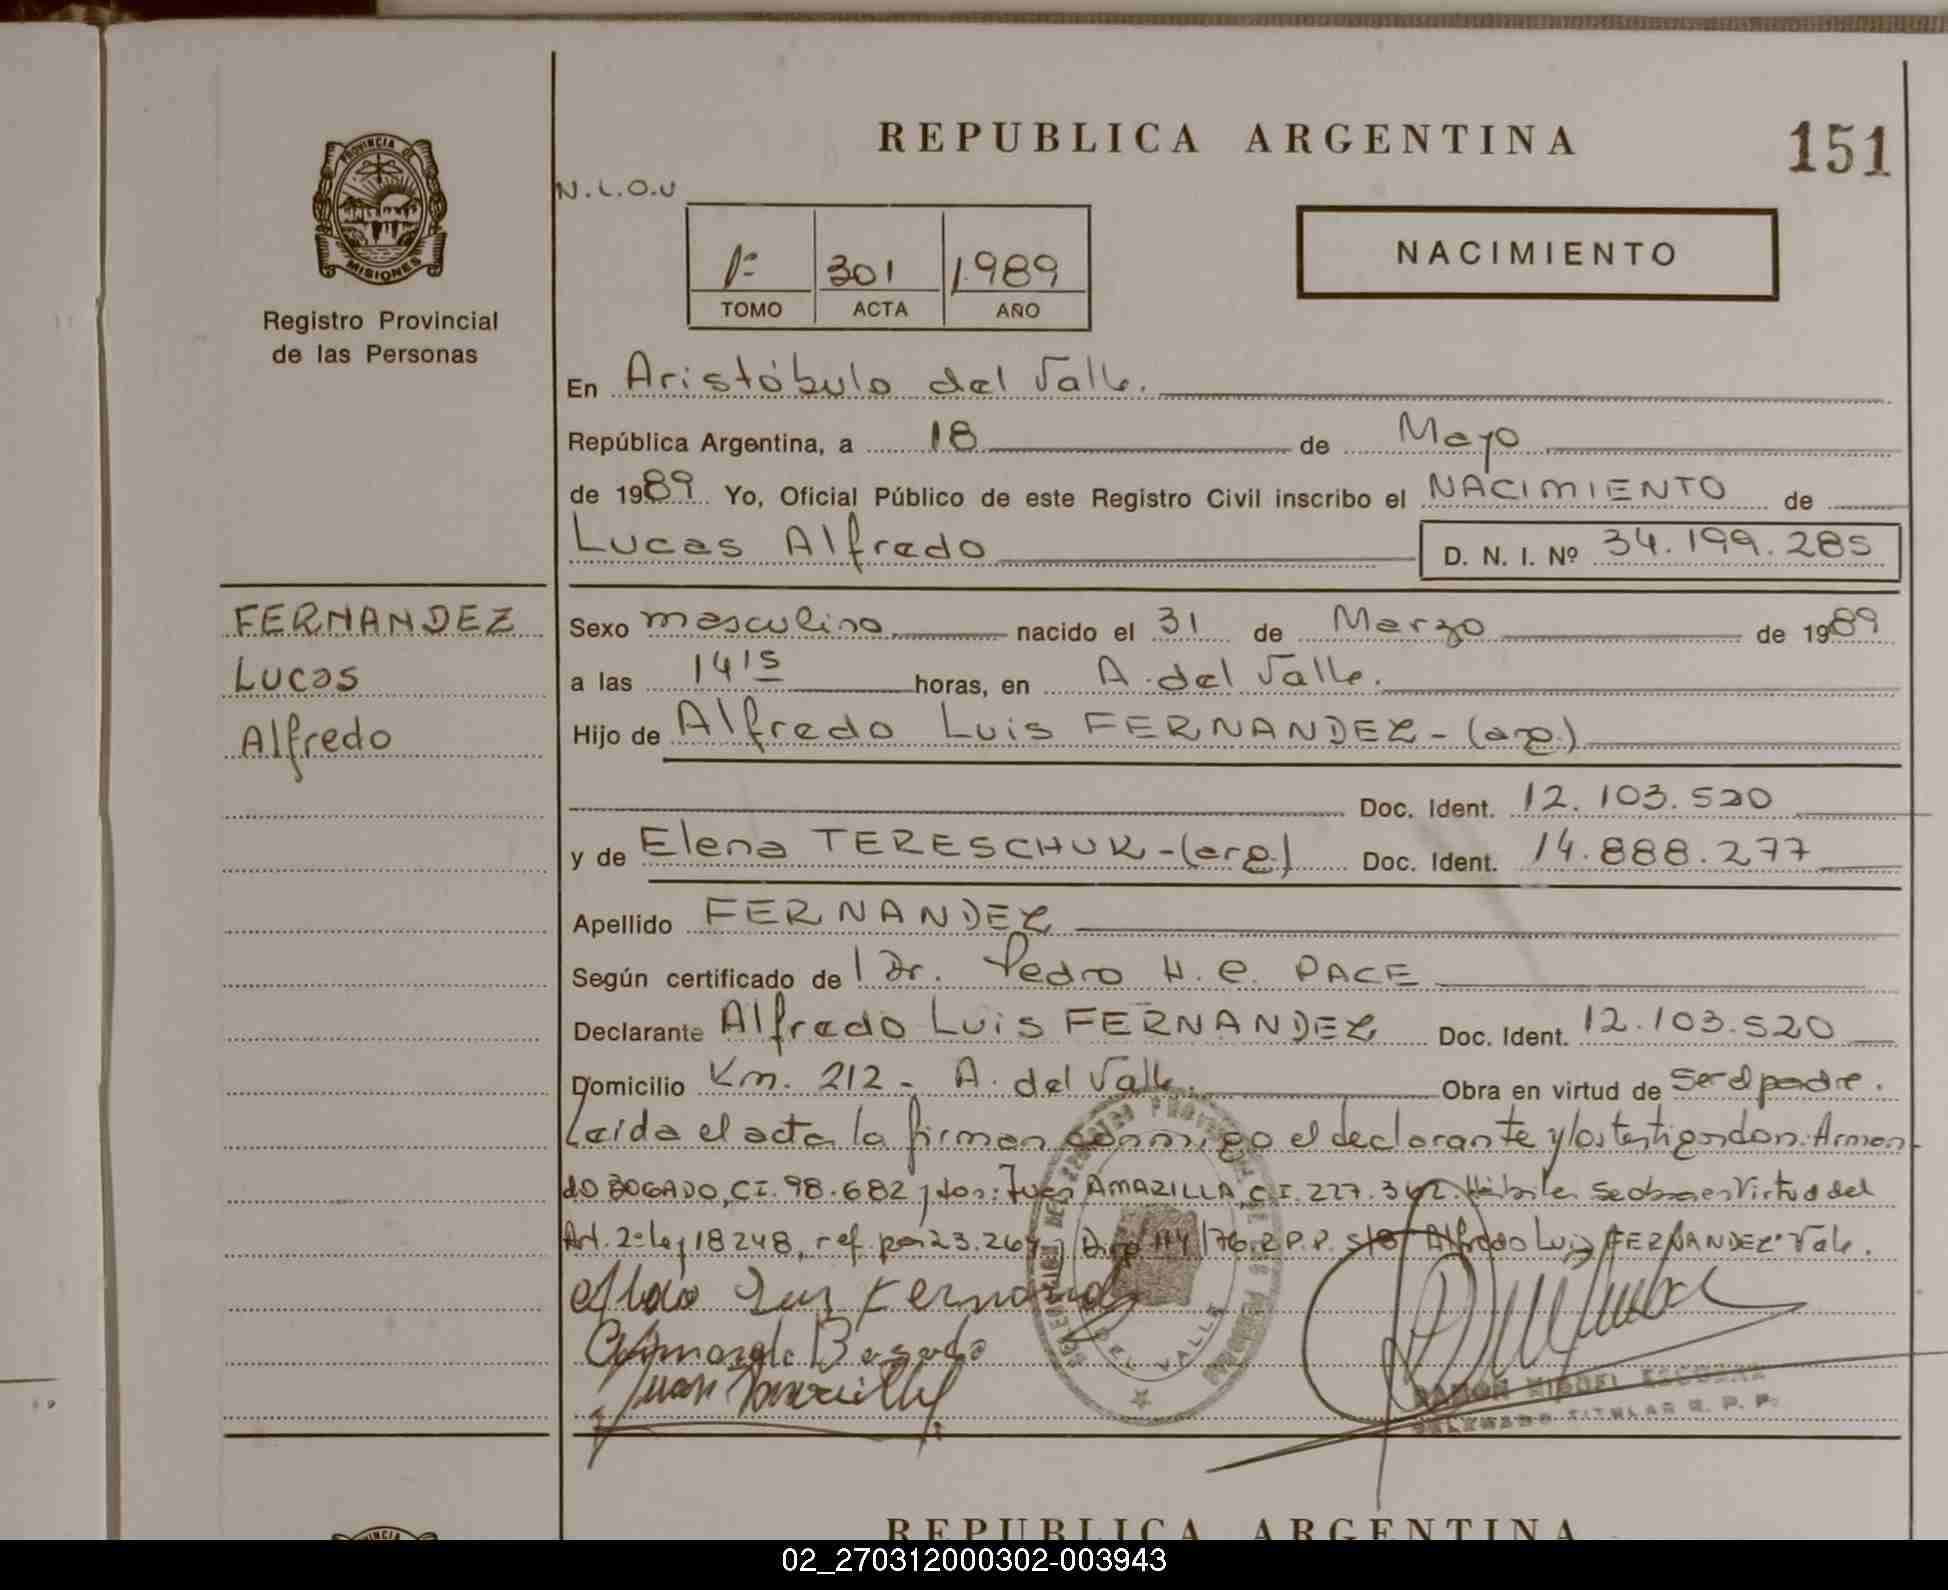 REPUBLICA ARGENTINA
151
PROVINCIA DE
MISIONES
Registro Provincial
de las Personas
N.L.O.U
1º 301 1.989
TOMO ACTA AÑO
NACIMIENTO
En Aristóbulo del Valle.
República Argentina, a 18 de Mayo
de 1989 Yo, Oficial Público de este Registro Civil inscribo el NACIMIENTO de
Lucas Alfredo D. N. I. Nº 34.199.285
FERNANDEZ
Lucas
Alfredo
Sexo masculino nacido el 31 de Marzo de 1989
a las 14 15 horas, en A. del Valle.
Hijo de Alfredo Luis FERNANDEZ - (arg.)
Doc. Ident. 12.103.520
y de Elena TERESCHUK - (arg.) Doc. Ident. 14.888.277
Apellido FERNANDEZ
Según certificado de l Dr. Pedro H. C. PACE
Declarante Alfredo Luis FERNANDEZ Doc. Ident. 12.103.520
Domicilio Km. 212 - A. del Valle. Obra en virtud de ser el padre.
Leida el acta la firman conmigo el declarante y los testigos don: Arman-
do BOGADO, C.I. 98.682 y don: Juan AMARILLA, C.I. 227.342. Hábiles. Se obra en Virtud del
Art. 2º ley 18248, ref. por 23.264 y 114/76. R.P.P. s/o Alfredo Luis FERNANDEZ: Vale.
Luis Fernand
Armando Bogado
Juan Amarilla
DEL VALLE
RAMON MIGUEL ESCOBAR
DELEGADO TITULAR R. P. P.
REPUBLICA ARGENTINA
02_270312000302-003943